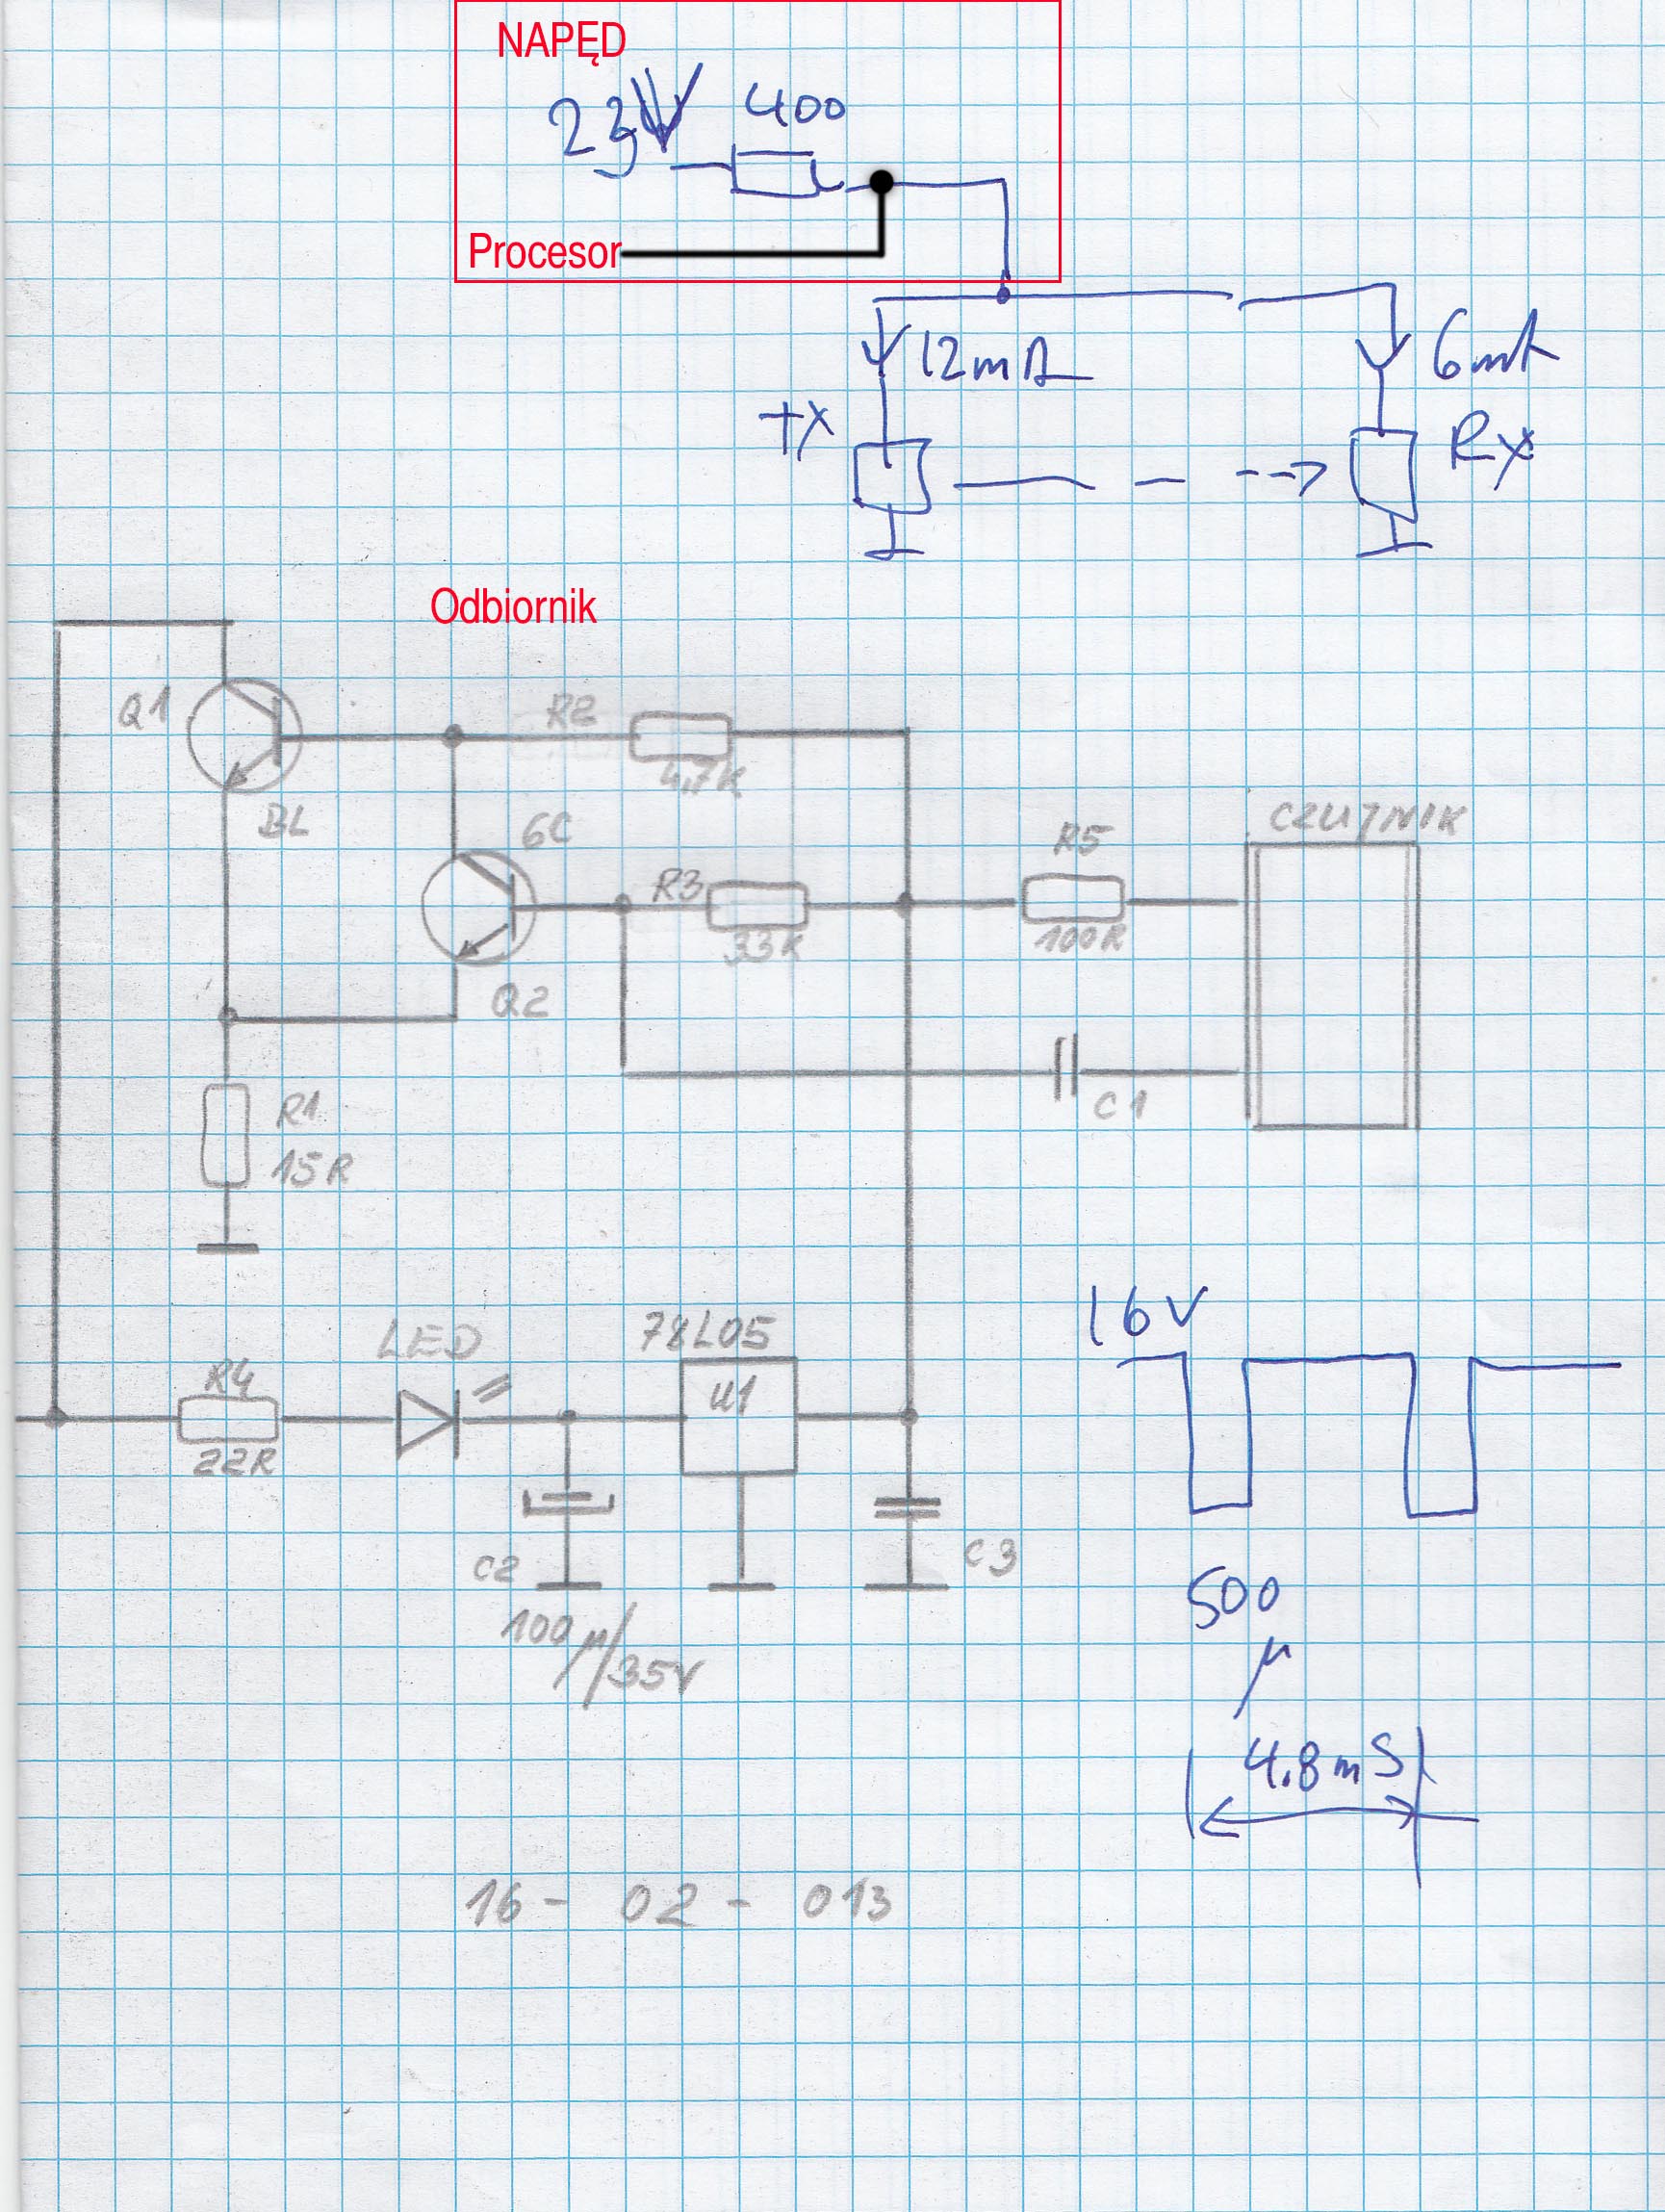 NAPĘD
23V 400
Procesor
12mA 6mA
TX RX
Odbiornik
Q1 R2
4,7K
BL 6C CZUJNIK
R3 R5
33K 100R
Q2
R1 C1
15R
16V
LED 78L05
R4 U1
22R
C2 C3
100µ/35V 500
µ
4.8mS
16- 02- 013